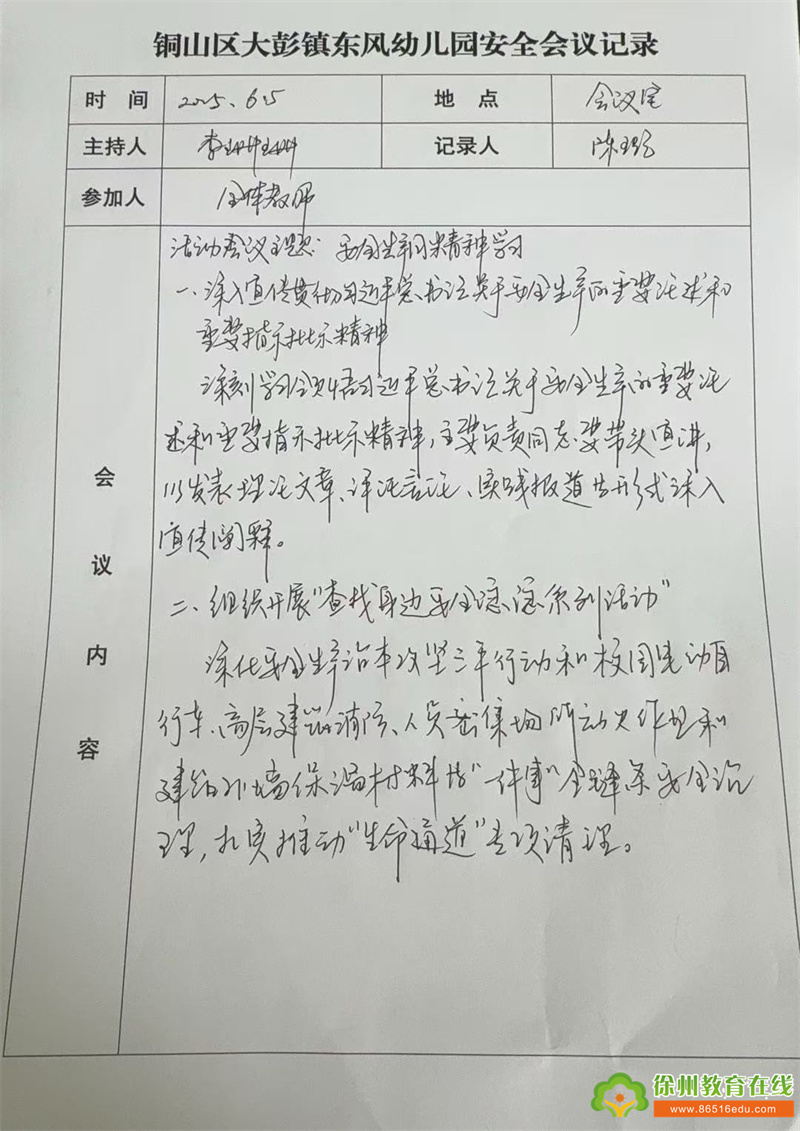 铜山区大彭镇东风幼儿园安全会议记录
时 间 2025.6.5 地 点 会议室
主持人 李 记录人 陈
参加人 全体教师
活动会议主题: 安全生产月精神学习
一、深入宣传贯彻习近平总书记关于安全生产的重要论述和
重要指示批示精神
深刻学习领悟习近平总书记关于安全生产的重要论
述和重要指示批示精神,主要负责同志要带头宣讲,
以发表理论文章、评论言论、实践报道等形式深入
宣传阐释。
二、组织开展"查找身边安全隐患系列活动"
深化安全生产治本攻坚三年行动和校园电动自
行车、高层建筑消防、人员密集场所动火作业和
建筑外墙保温材料等"一件事"全链条安全治
理,扎实推动"生命通道"专项清理。
会
议
内
容
徐州教育在线
www.86516edu.com